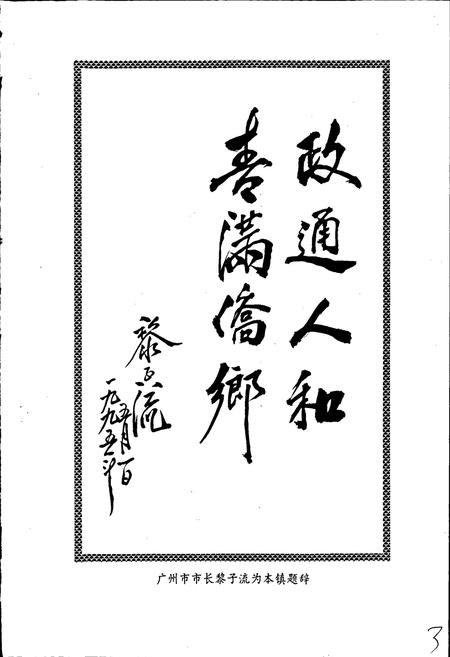 政通人和
喜滿僑鄉
黎子流
一九九五年
五月一日
广州市市长黎子流为本镇题辞
3